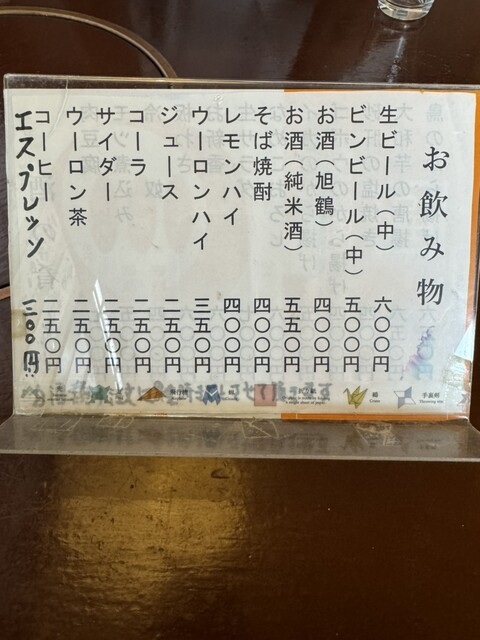 お飲み物
生ビール(中) 六〇〇円
ビンビール(中) 五〇〇円
お酒(旭鶴) 四〇〇円
お酒(純米酒) 五五〇円
そば焼酎 四〇〇円
レモンハイ 四〇〇円
ウーロンハイ 三五〇円
ジュース 二五〇円
コーラ 二五〇円
サイダー 二五〇円
ウーロン茶 二五〇円
コーヒー 二五〇円
エスプレッソ 三〇〇円
手裏剣
鶴
Crane